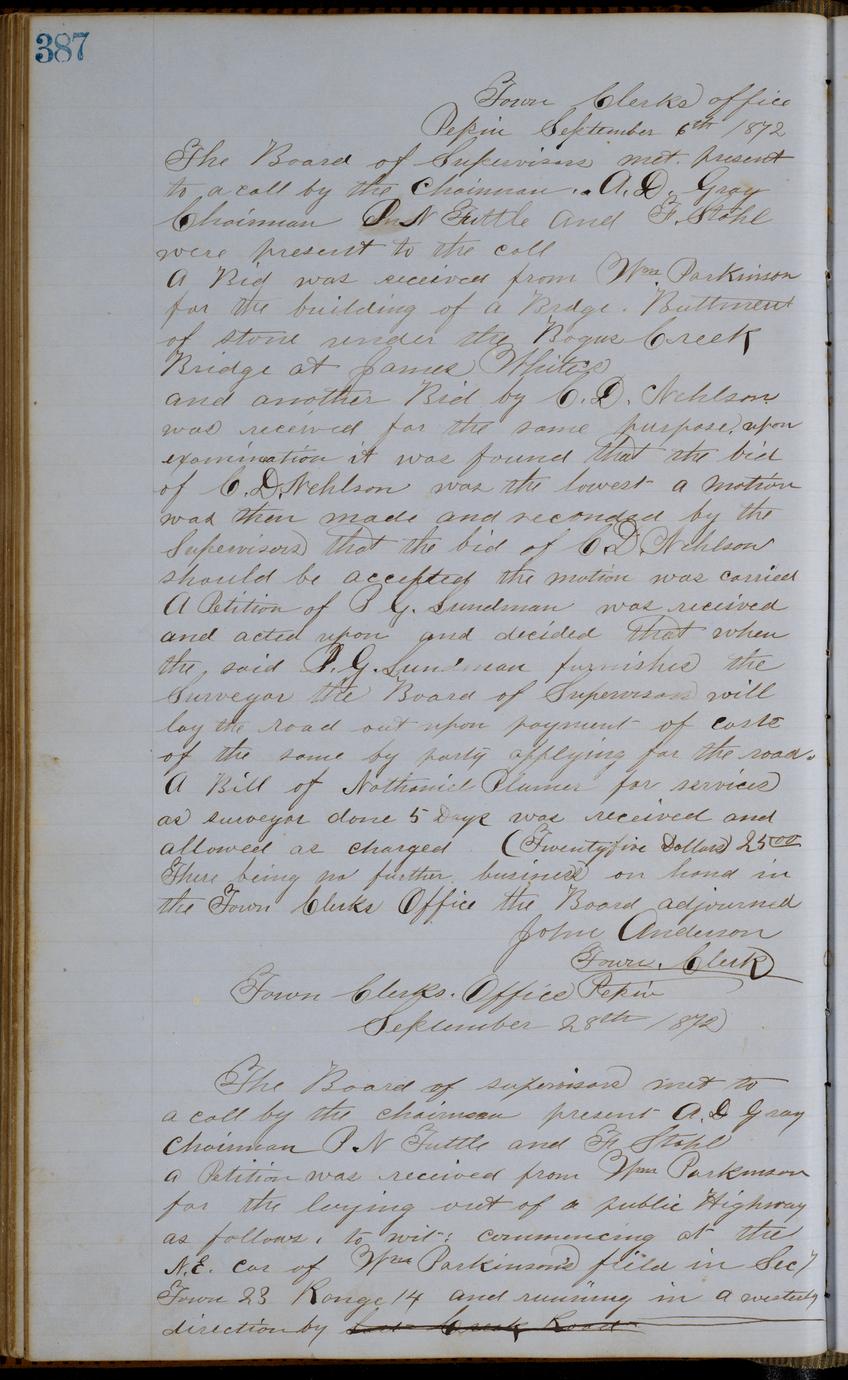 387
Town Clerks office
Pepin September 6th 1872
The Board of Supervisors met. present
to a call by the Chairman. A.D. Gray
Chairman P.N Tuttle and F. Stahl
were present to the call
A Bid was received from Wm Parkinson
for the building of a Brdge. Buttment
of stone under the Bogus Creek
Bridge at James Whites
and another Bid by C.D. Nehlson
was received for the same purpose, upon
examination it was found that the bid
of C.D. Nehlson was the lowest a motion
was then made and reconded by the
Supervisors that the bid of C.D. Nehlson
should be accepted the motion was carried
A Petition of P G. Lundman was received
and acted upon and decided that when
the said P.G. Lundman furnishes the
Surveyor the Board of Supervisors will
lay the road out upon payment of costs
of the same by party applying for the road.
A Bill of Nathaniel Plumer for services
as surveyor done 5 Days was received and
allowed as charged (Twentyfive Dollars) 25 00
There being no further business on hand in
the Town Clerks Office the Board adjourned
John Anderson
Town. Clerk
Town Clerks. Office Pepin
September 28th 1872
The Board of supervisors met to
a call by the chairman present A.D Gray
Chairman P N Tuttle and F. Stahl
a Petition was received from Wm Parkinson
for the laying out of a public Highway
as follows, to wit: commencing at the
N.E. cor of Wm Parkinson's field in Sec 7
Town 23 Range 14 and running in a westerly
direction by Creek Road